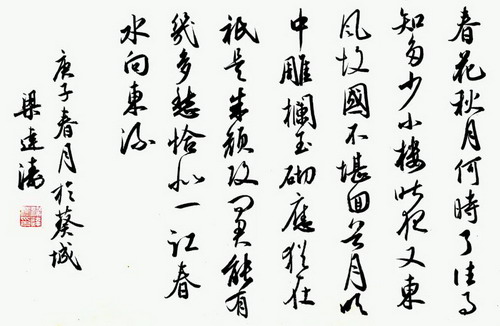 春花秋月何時了往事
知多少小樓昨夜又東
風故國不堪回首月明
中雕欄玉砌應猶在
祇是朱顏改問君能有
幾多愁恰似一江春
水向東流
庚子春月於葵城
梁達濤